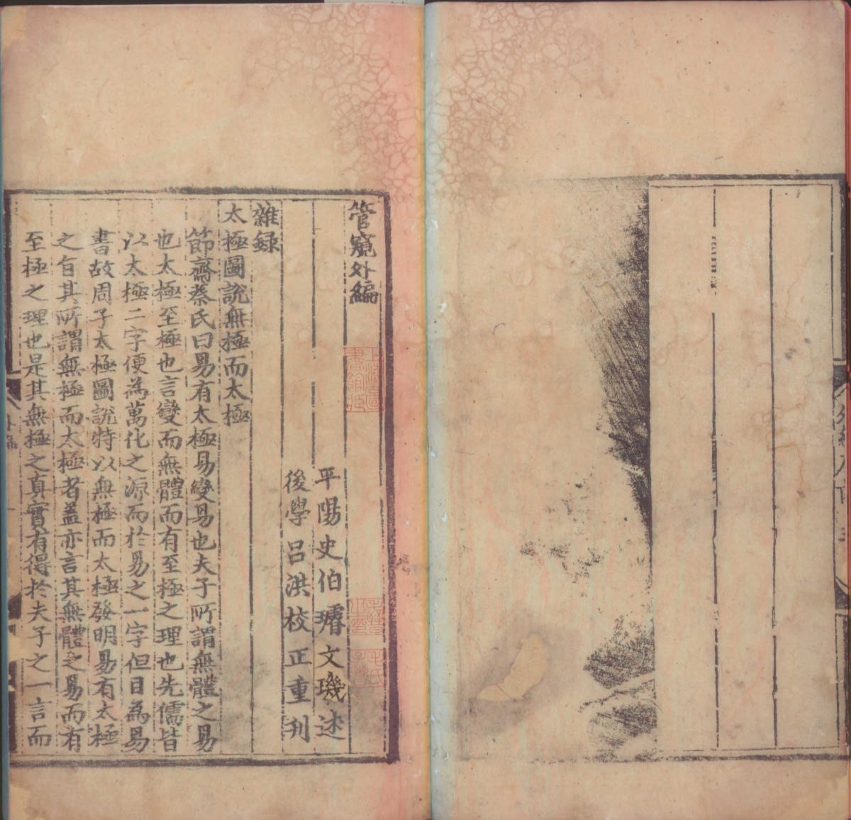 管窺外編
平陽史伯璿文璣述
後學呂洪校正重刊
雜録
太極圖說無極而太極
節齋蔡氏曰易有太極易變易也夫子所謂無體之易
也太極至極也言變而無體而有至極之理也先儒皆
以太極二字便為萬化之源而於易之一字但目為易
書故周子太極圖說特以無極而太極發明易有太極
之旨其所謂無極而太極者盖亦言其無體之易而有
至極之理也是其無極之真實有得於夫子之一言而
外編